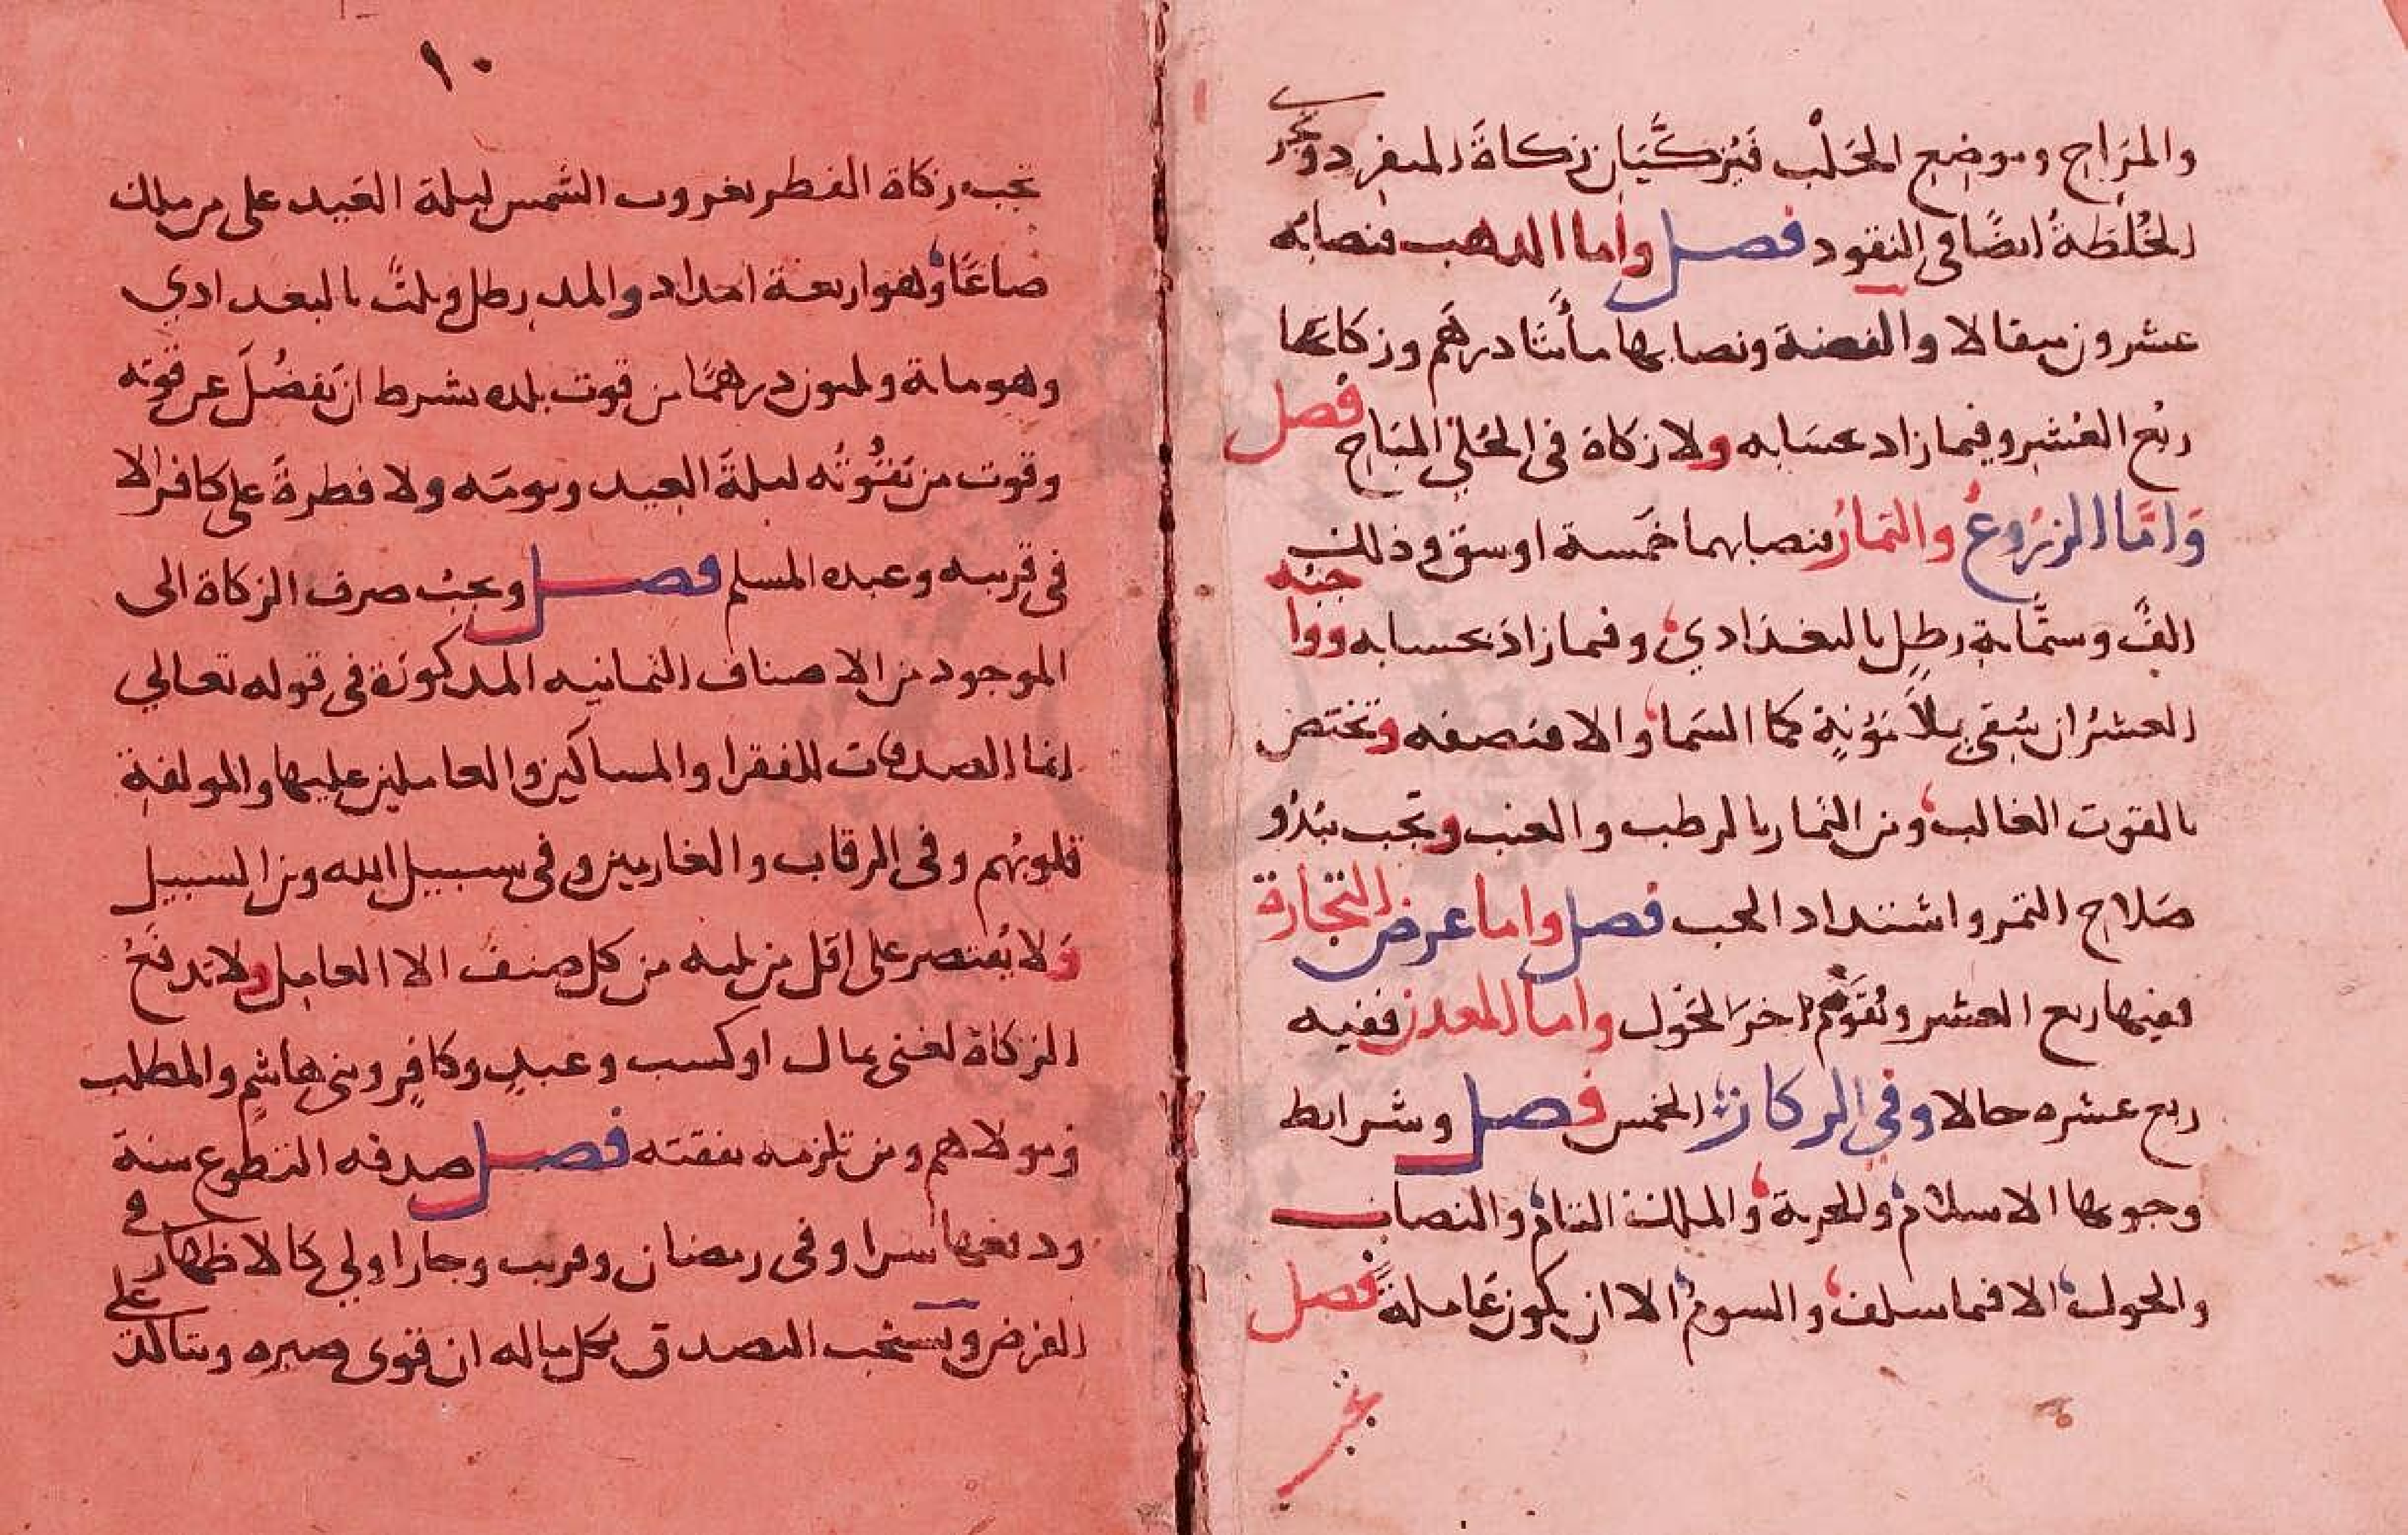 والمراح وموضع المحلب فيزكيان زكاة المنفرد وتجري
الخلطة ايضا في النقود فصل واما الذهب فنصابه
عشرون مثقالا والفضة ونصابها مأتتا درهم وزكاتها
ربع العشر وفيما زاد بحسابه ولا زكاة في الحلي المباح فصل
واما الزروع والثمار فنصابهما خمسة اوسق وذلك
الف وستماية رطل بالبغدادي وفيما زاد بحسابه وواجبه
العشر ان سقي بلا مؤنة كما السما والا فنصفه وتختص
بالقوت الغالب ومن الثمار بالرطب والعنب وتجب ببدو
صلاح الثمر واشتداد الحب فصل واما عرض التجارة
ففيها ربع العشر وتقوم اخر الحول واما المعدن ففيه
ربع عشره حالا وفي الركاز الخمس فصل وشرايط
وجوبها الاسلام والحرية والملك التام والنصاب
والحول الا فيما سلف والسوم الا ان يكون عاملة فصل
تجب
١٠
تجب زكاة الفطر بغروب الشمس ليلة العيد على من يملك
صاعا وهو اربعة امداد والمد رطل وثلث بالبغدادي
وهو ماية وثلثون درهما من قوت بلده بشرط ان يفضل عن قوته
وقوت من تقوته ليلة العيد ويومه ولا فطرة على كافر الا
في قريبه وعبده المسلم فصل ويجب صرف الزكاة الى
الموجود من الاصناف الثمانيه المذكورة في قوله تعالي
انما الصدقات للفقرا والمساكين والعاملين عليها والمولفة
قلوبهم وفي الرقاب والغارمين وفي سبيل الله وبن السبيل
ولا يقتصر على اقل من ثلثه من كل صنف الا العامل ولا تدفع
الزكاة لغني بمال او كسب وعبد وكافر وبني هاشم والمطلب
ومولاهم ومن تلزمه نفقته فصل صدقه التطوع سنة
ودفعها سرا وفي رمضان وقريب وجار اولي كالاظهار في
الفرض ويستحب التصدق بكل ماله ان قوى صبره ويتاكد على